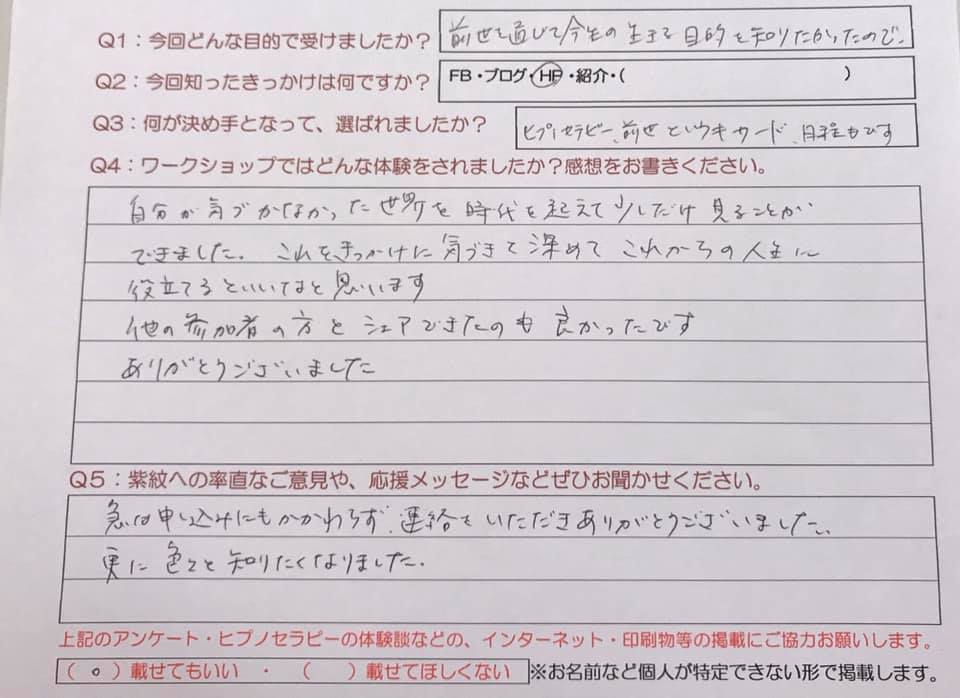 Q1：今回どんな目的で受けましたか？ 前世を通じて今生の生きる目的を知りたかったので。
Q2：今回知ったきっかけは何ですか？ FB・ブログ・HP・紹介・（ ）
Q3：何が決め手となって、選ばれましたか？ ヒプノセラピー、前世というキーワード、日程もです
Q4：ワークショップではどんな体験をされましたか？感想をお書きください。
自分が気づかなかった世界を時代を超えて少しだけ見ることが
できました。これをきっかけに気づきを深めてこれからの人生に
役立てるといいなと思います
他の参加者の方とシェアできたのも良かったです
ありがとうございました
Q5：紫紋への率直なご意見や、応援メッセージなどぜひお聞かせください。
急な申し込みにもかかわらず、連絡をいただきありがとうございました。
更に色々と知りたくなりました。
上記のアンケート・ヒプノセラピーの体験談などの、インターネット・印刷物等の掲載にご協力お願いします。
（ ○ ）載せてもいい ・ （ ）載せてほしくない ※お名前など個人が特定できない形で掲載します。